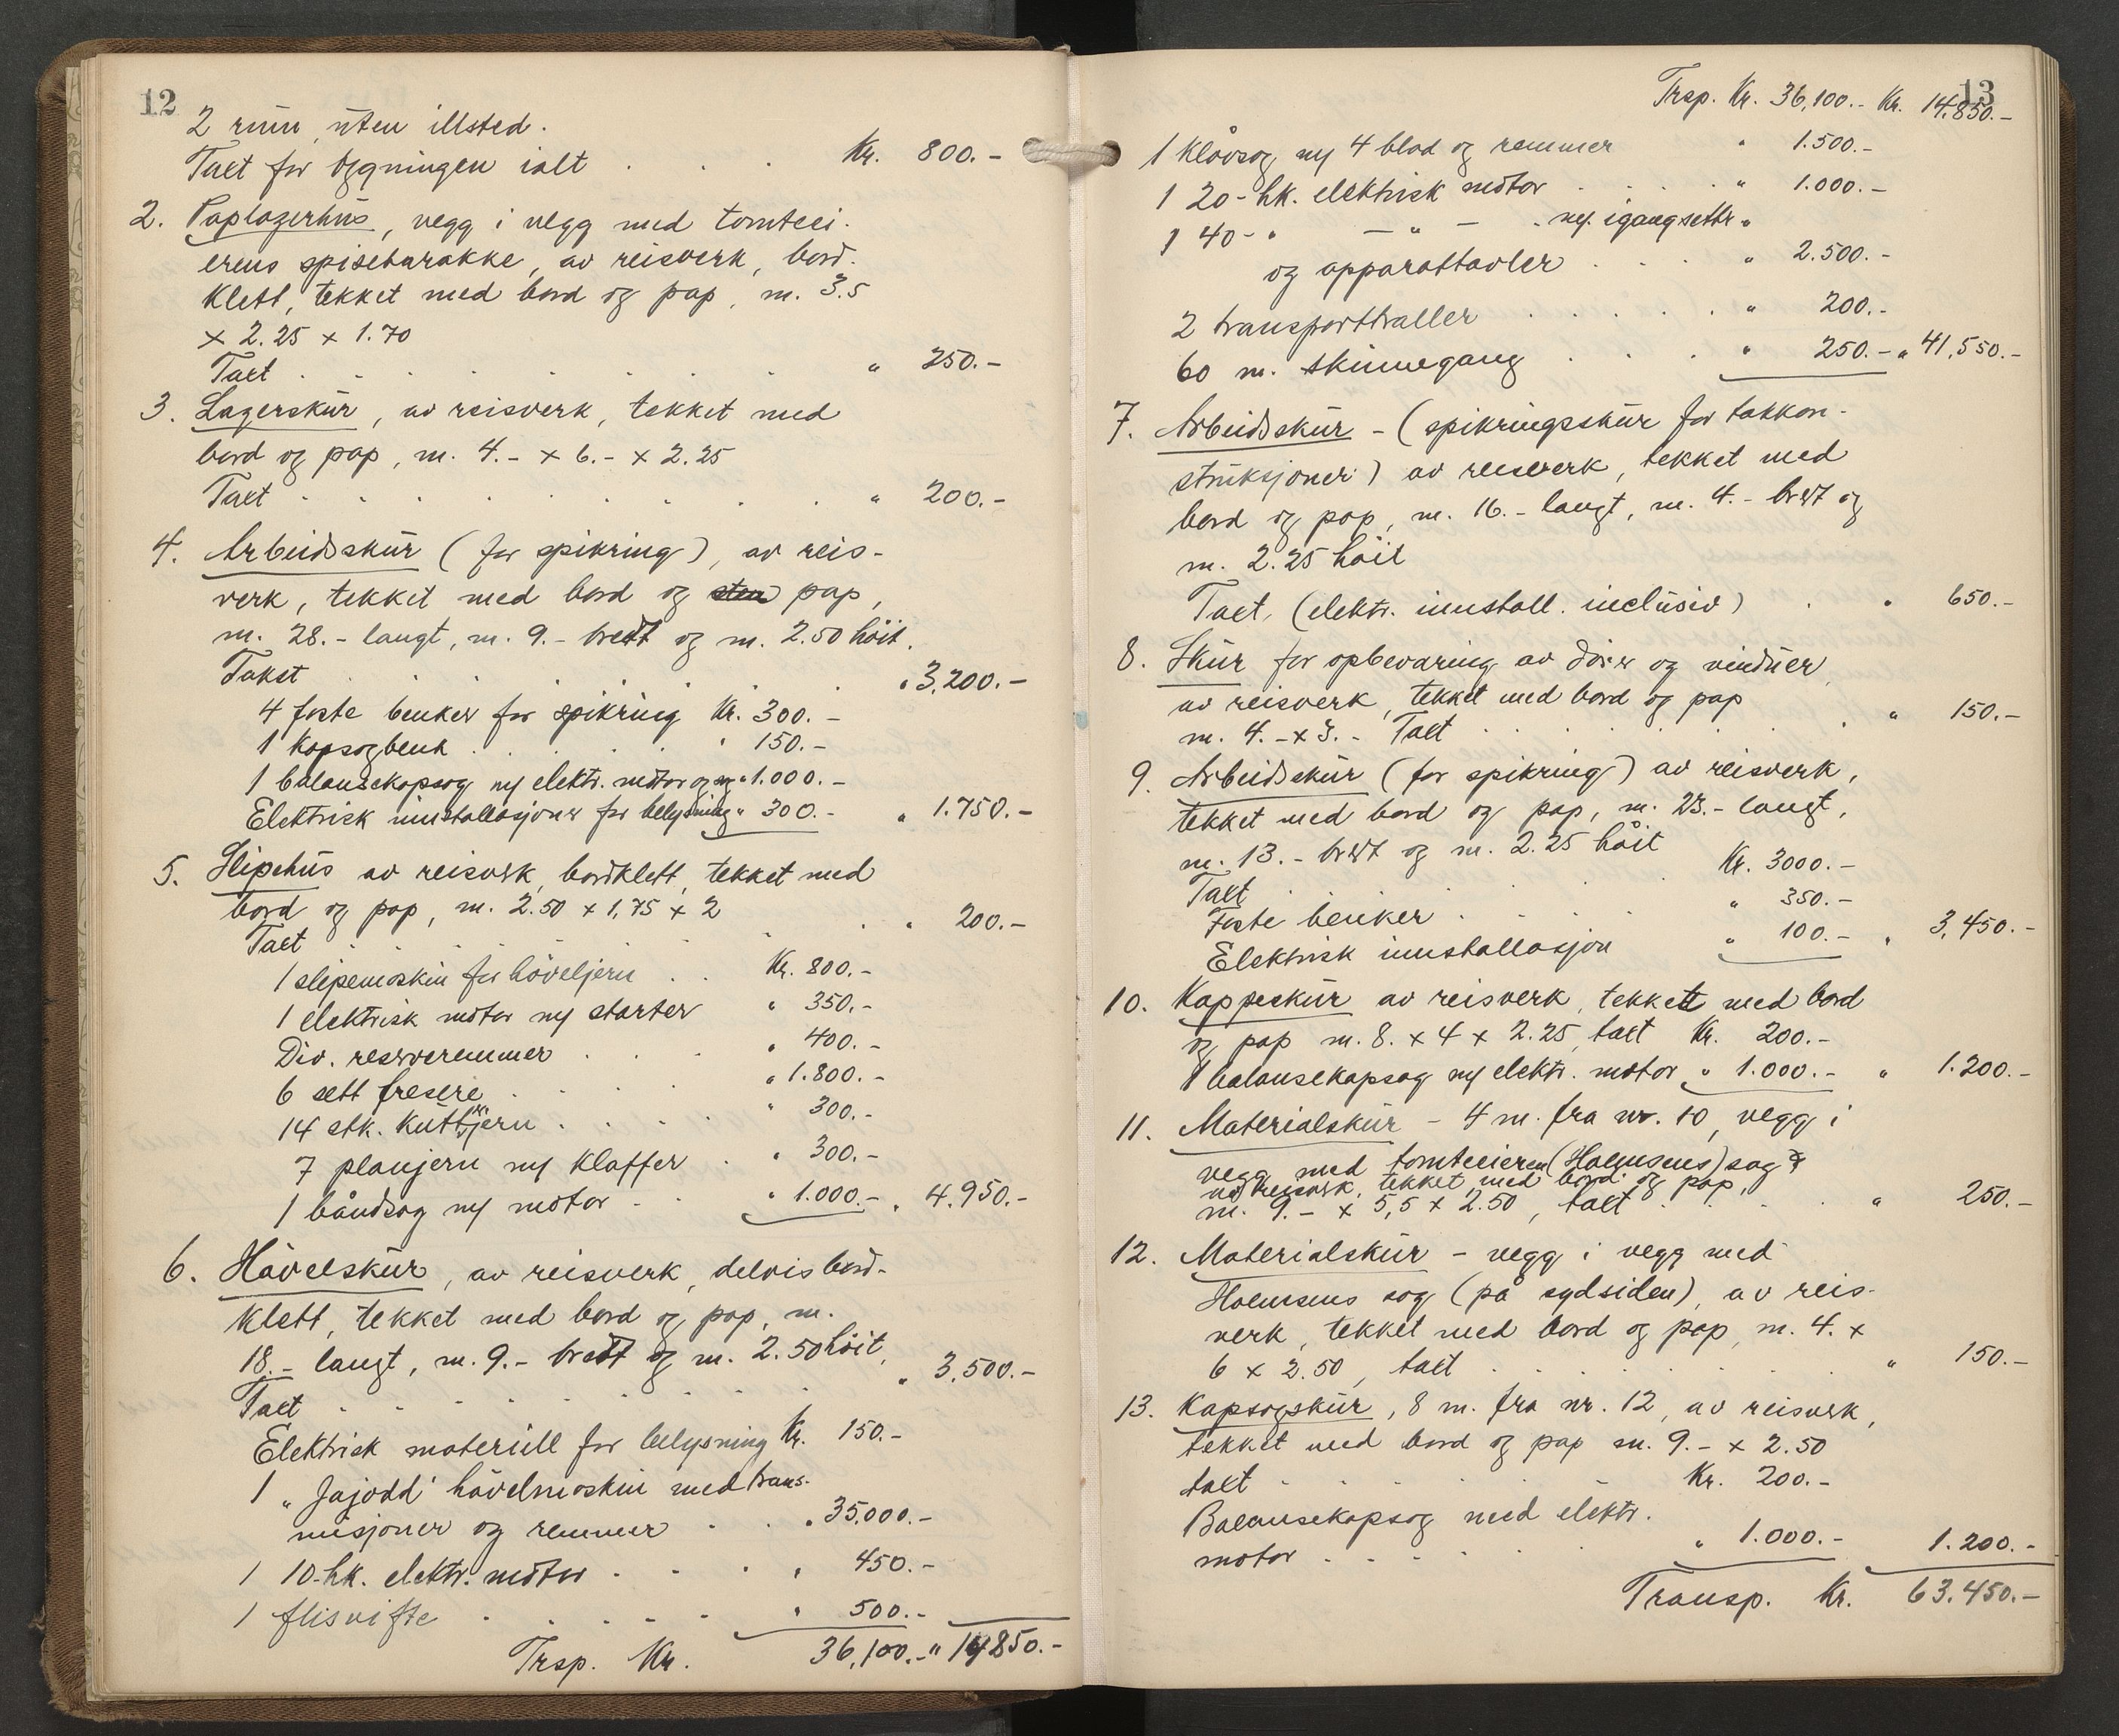 12
2 rum uten illsted.
Taxt for bygningen ialt . . . Kr. 800.-
2. Paplagerhus, vegg i vegg med tomteei-
erens spisebarakke, av reisverk, bord-
klett, tekket med bord og pap, m. 3.5
x 2.25 x 1.70
Taxt . . . . . . . . " 250.-
3. Lagerskur, av reisverk, tekket med
bord og pap, m. 4.- x 6.- x 2.25
Taxt . . . . . . . . " 200.-
4. Arbeidsskur (for spikring), av reis-
verk, tekket med bord og sten pap,
m. 28.- langt, m. 9.- bredt og m. 2.50 höit.
Takst . . . . . . . " 3,200.-
4 faste benker for spikring Kr. 300.-
1 kapsagbenk . . . . . " 150.-
1 balansekapsag m/ elektr. motor og sag " 1.000.-
Elektrisk installasjoner for belysning " 300.- " 1.750.-
5. Slipehus av reisverk, bordklett, tekket med
bord og pap, m. 2.50 x 1,75 x 2
Taxt . . . . . . . " 200.-
1 slipemaskin for höveljern . . Kr. 800.-
1 elektrisk motor m/ starter " 350.-
Div. reserveremmer . . . " 400.-
6 sett fresere . . . . " 1.800.-
14 stk. kutterjern . . . . " 300.-
7 planjern m/ klaffer . " 300.-
1 båndsag m/ motor . . " 1.000.- " 4.950.-
6. Hövelskur, av reisverk, delvis bord-
klett, tekket med bord og pap, m.
18.- langt, m. 9.- bredt og m. 2.50 höit,
Taxt . . . . . . . " 3.500.-
Elektrisk materiell for belysning Kr. 150.-
1 „Jajodd" hövelmaskin med trans-
misjoner og remmer . . " 35.000.-
1 10-hk. elektr. motor . . . " 450.-
1 flisvifte . . . . . " 500.-
Trsp. Kr. 36,100.- " 14850.-
13
Trsp. Kr. 36,100.- Kr. 14.850.-
1 klövsag m/ 4 blad og remmer " 1.500.-
1 20-hk. elektrisk motor . . . . " 1.000.-
1 40-" — " — m/ igangsetter "
og apparattavler . . . " 2.500.-
2 transporttraller . . . . . " 200.-
60 m. skinnegang . . . . " 250.- " 41,550.-
7. Arbeidsskur - (spikringsskur for takkon-
struksjoner) av reisverk, tekket med
bord og pap, m. 16.- langt, m. 4.- bredt og
m. 2.25 höit
Taxt, (elektr. innstall. inclusiv) . " 650.-
8. Skur for opbevaring av dörer og vinduer,
av reisverk, tekket med bord og pap
m. 4.- x 3.- Taxt . . . . . . " 150.-
9. Arbeidsskur (for spikring) av reisverk,
tekket med bord og pap, m. 23.- langt,
m. 13.- bredt og m. 2.25 höit
Taxt . . . . . Kr. 3000.-
Faste benker . . . . " 350.-
Elektrisk innstallasjon " 100.- " 3,450.-
10. Kappeskur av reisverk, tekket med bord
og pap m. 8. x 4 x 2.25, taxt Kr. 200.-
1 balansekapsag m/ elektr. motor " 1.000.- " 1.200.-
11. Materialskur - 4 m. fra nr. 10, vegg i
vegg med tomteeieren (Holmsens) sag
av reisverk, tekket med bord og pap,
m. 9.- x 5,5 x 2.50, taxt . . . . " 250.-
12. Materialskur - vegg i vegg med
Holmsens sag (på sydsiden), av reis-
verk, tekket med bord og pap, m. 4. x
6 x 2.50, taxt . . . . . . . " 150.-
13. Kapsagskur, 8 m. fra nr. 12, av reisverk,
tekket med bord og pap m. 9.- x 2.50
taxt . . . . . . Kr. 200.-
Balansekapsag med elektr.
motor . . . . . " 1.000.- 1.200.-
Transp. Kr. 63.450.-